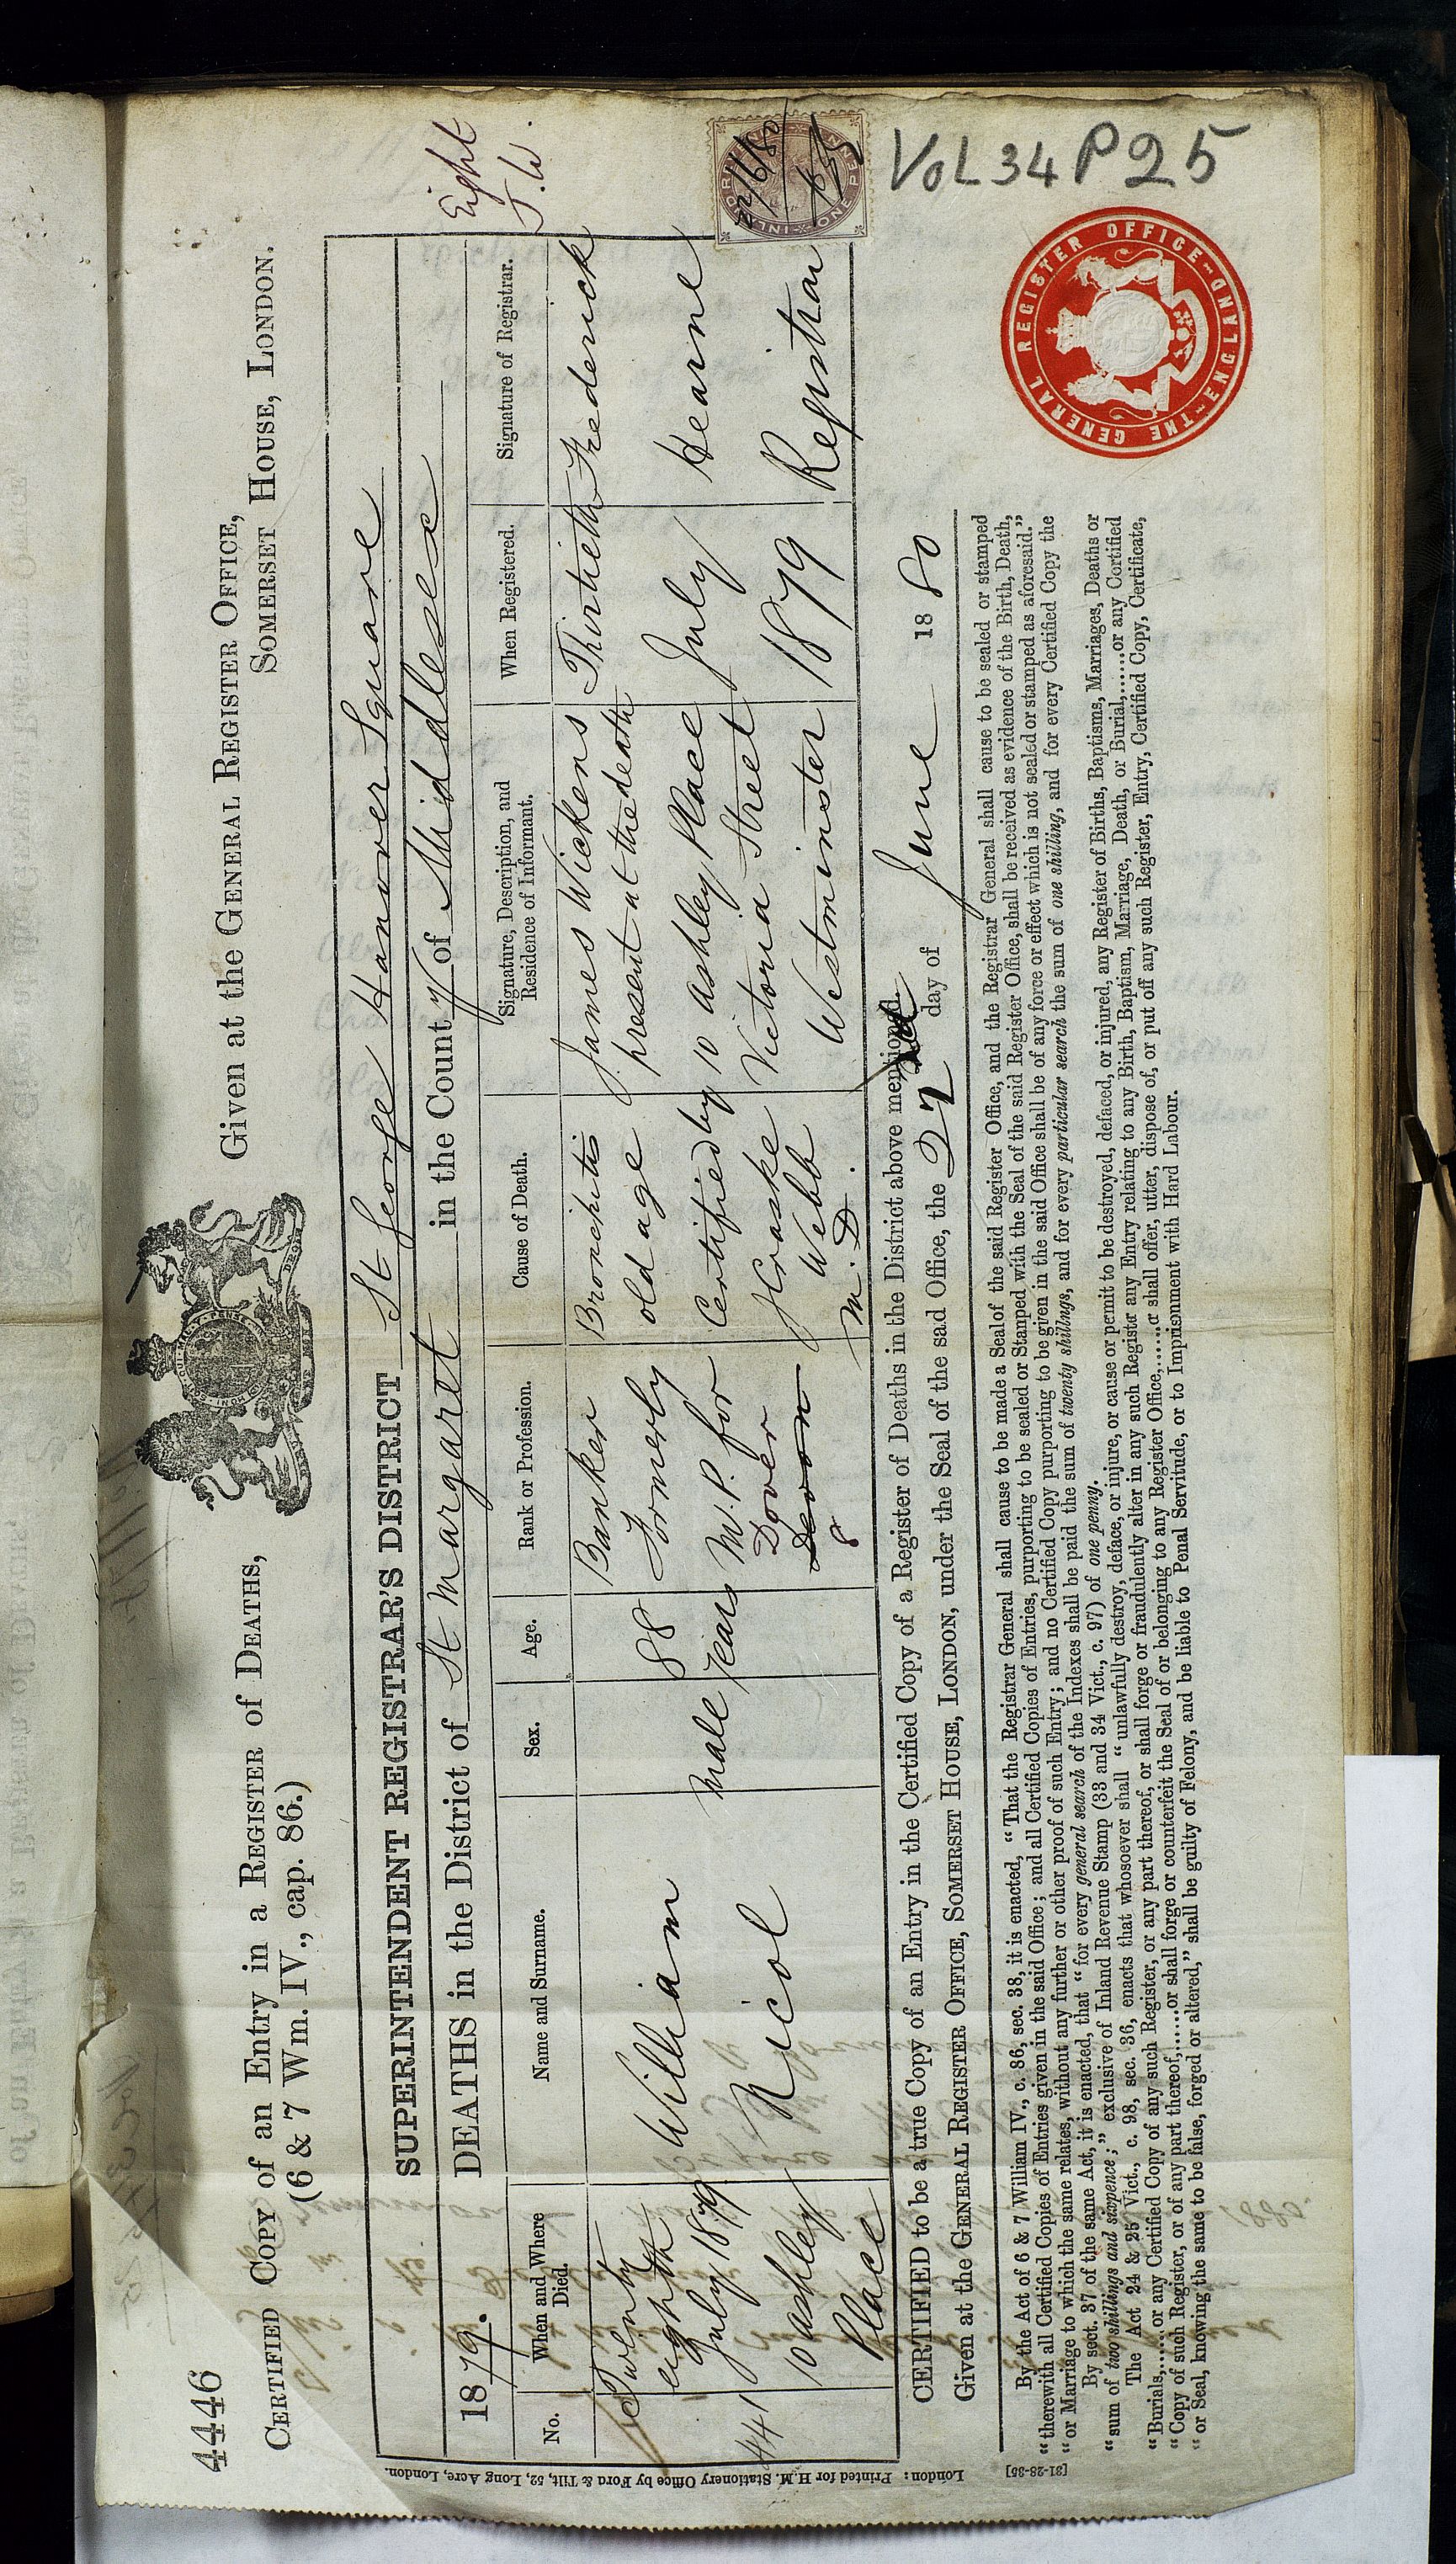 4446
CERTIFIED COPY of an Entry in a REGISTER of DEATHS,
(6 & 7 Wm. IV., cap. 86.)
Given at the GENERAL REGISTER OFFICE,
SOMERSET HOUSE, LONDON.
SUPERINTENDENT REGISTRAR'S DISTRICT St George Hanover Square
1879. DEATHS in the District of St Margaret in the County of Middlesex
Eight
J.W.
No.
When and Where Died.
Name and Surname.
Sex.
Age.
Rank or Profession.
Cause of Death.
Signature, Description, and Residence of Informant.
When Registered.
Signature of Registrar.
441
Twenty
eighth
July 1879
10 Ashley
Place
William
Nicol
Male
88
years
Banker
Formerly
M.P. for
Dover
Devon
8
Bronchitis
old age
Certified by
J Craske
Webb
M.D.
James Wickens
present at the death
10 Ashley Place
Victoria Street
Westminster
Thirtieth
July
1879
Frederick
Hearne
Registrar
INLAND REVENUE
ONE PENNY
2/6/80
VOL 34 P 25
CERTIFIED to be a true Copy of an Entry in the Certified Copy of a Register of Deaths in the District above mentioned.
Given at the GENERAL REGISTER OFFICE, SOMERSET HOUSE, LONDON, under the Seal of the said Office, the 2nd day of June 1880
By the Act of 6 & 7 William IV., c. 86, sec. 38, it is enacted, "That the Registrar General shall cause to be made a Seal of the said Register Office, and the Registrar General shall cause to be sealed or stamped
"therewith all Certified Copies of Entries given in the said Office; and all Certified Copies of Entries, purporting to be sealed or Stamped with the Seal of the said Register Office, shall be received as evidence of the Birth, Death,
"or Marriage to which the same relates, without any further or other proof of such Entry; and no Certified Copy purporting to be given in the said Office shall be of any force or effect which is not sealed or stamped as aforesaid."
By sect. 37 of the same Act, it is enacted, that "for every general search of the Indexes shall be paid the sum of twenty shillings, and for every particular search the sum of one shilling, and for every Certified Copy the
"sum of two shillings and sixpence;" exclusive of Inland Revenue Stamp (33 and 34 Vict., c. 97) of one penny.
The Act 24 & 25 Vict., c. 98, sec. 36, enacts that whosoever shall "unlawfully destroy, deface, or injure, or cause or permit to be destroyed, defaced, or injured, any Register of Births, Baptisms, Marriages, Deaths or
"Burials,......or any Certified Copy of any such Register, or any part thereof, or shall forge or fraudulently alter in any such Register any Entry relating to any Birth, Baptism, Marriage, Death, or Burial,......or any Certified
"Copy of such Register, or of any part thereof,......or shall forge or counterfeit the Seal of or belonging to any Register Office,......or shall offer, utter, dispose of, or put off any such Register, Entry, Certified Copy, Certificate,
"or Seal, knowing the same to be false, forged or altered," shall be guilty of Felony, and be liable to Penal Servitude, or to Imprisonment with Hard Labour.
THE GENERAL REGISTER OFFICE - ENGLAND
[31-28-35]
London: Printed for H.M. Stationery Office by Ford & Tilt, 52, Long Acre, London.